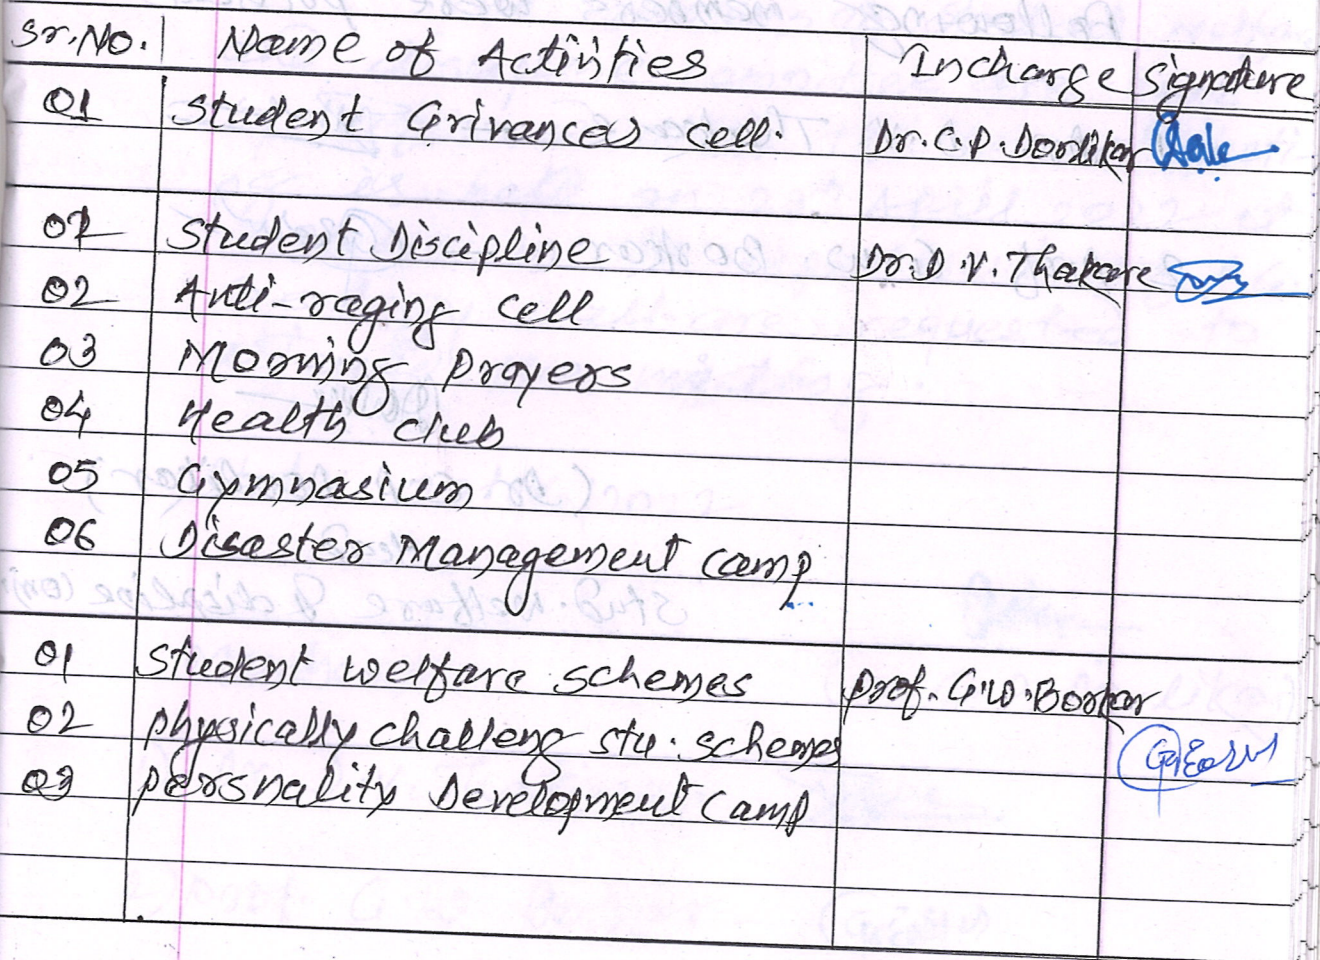 Sr.No. Name of Activities Incharge Signature
01 Student Grivances Cell. Dr. C.P. Dorlikar
01 Student Discipline Dr. D.V. Thakare
02 Anti-raging cell
03 Morning prayers
04 Health club
05 Gymnasium
06 Disaster Management Camp
01 Student welfare schemes Prof. G.W. Borkar
02 physically challeng stu. schemes
03 persnality Development Camp